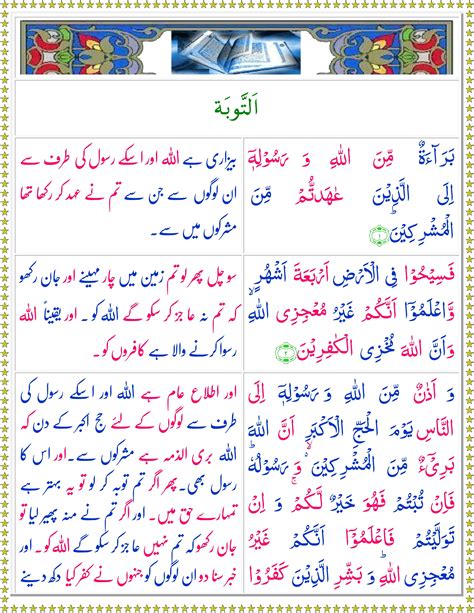 اَلتَّوبَة
بَرَآءَةٌ مِّنَ اللهِ وَ رَسُوْلِهٖٓ
اِلَى الَّذِيْنَ عٰهَدتُّمْ مِّنَ
الْمُشْرِكِيْنَؕ ۝۱
بیزاری ہے اللہ اور اسکے رسول کی طرف سے
ان لوگوں سے جن سے تم نے عہد کر رکھا تھا
مشرکوں میں سے۔
فَسِيْحُوْا فِى الْاَرْضِ اَرْبَعَةَ اَشْهُرٍ
وَّاعْلَمُوْۤا اَنَّكُمْ غَيْرُ مُعْجِزِى اللهِۙ
وَاَنَّ اللهَ مُخْزِى الْكٰفِرِيْنَ ۝۲
سو چل پھر لو تم زمین میں چار مہینے اور جان رکھو
کہ تم نہ عاجز کر سکو گے اللہ کو ۔ اور یقیناً اللہ
رسوا کرنے والا ہے کافروں کو ۔
وَ اَذَانٌ مِّنَ اللهِ وَ رَسُوْلِهٖۤ اِلَى
النَّاسِ يَوْمَ الْحَجِّ الْاَكْبَرِ اَنَّ اللهَ
بَرِىْٓءٌ مِّنَ الْمُشْرِكِيْنَ ۙ وَ رَسُوْلُهٗؕ
فَاِنْ تُبْتُمْ فَهُوَ خَيْرٌ لَّكُمْ ۚ وَ اِنْ
تَوَلَّيْتُمْ فَاعْلَمُوْۤا اَنَّكُمْ غَيْرُ
مُعْجِزِى اللهِؕ وَ بَشِّرِ الَّذِيْنَ كَفَرُوْا
اور اطلاع عام ہے اللہ اور اسکے رسول کی
طرف سے لوگوں کے لئے حج اکبر کے دن کہ
اللہ بری الذمہ ہے مشرکوں سے۔ اور اس کا
رسول بھی۔ پھر اگر تم توبہ کر لو تو یہ بہتر ہے
تمہارے حق میں۔ اور اگر تم نے منہ پھیر لیا تو
جان رکھو کہ تم نہیں عاجز کر سکو گے اللہ کو ۔ اور
خبر سنا دو ان لوگوں کو جنہوں نے کفر کیا دکھ دینے